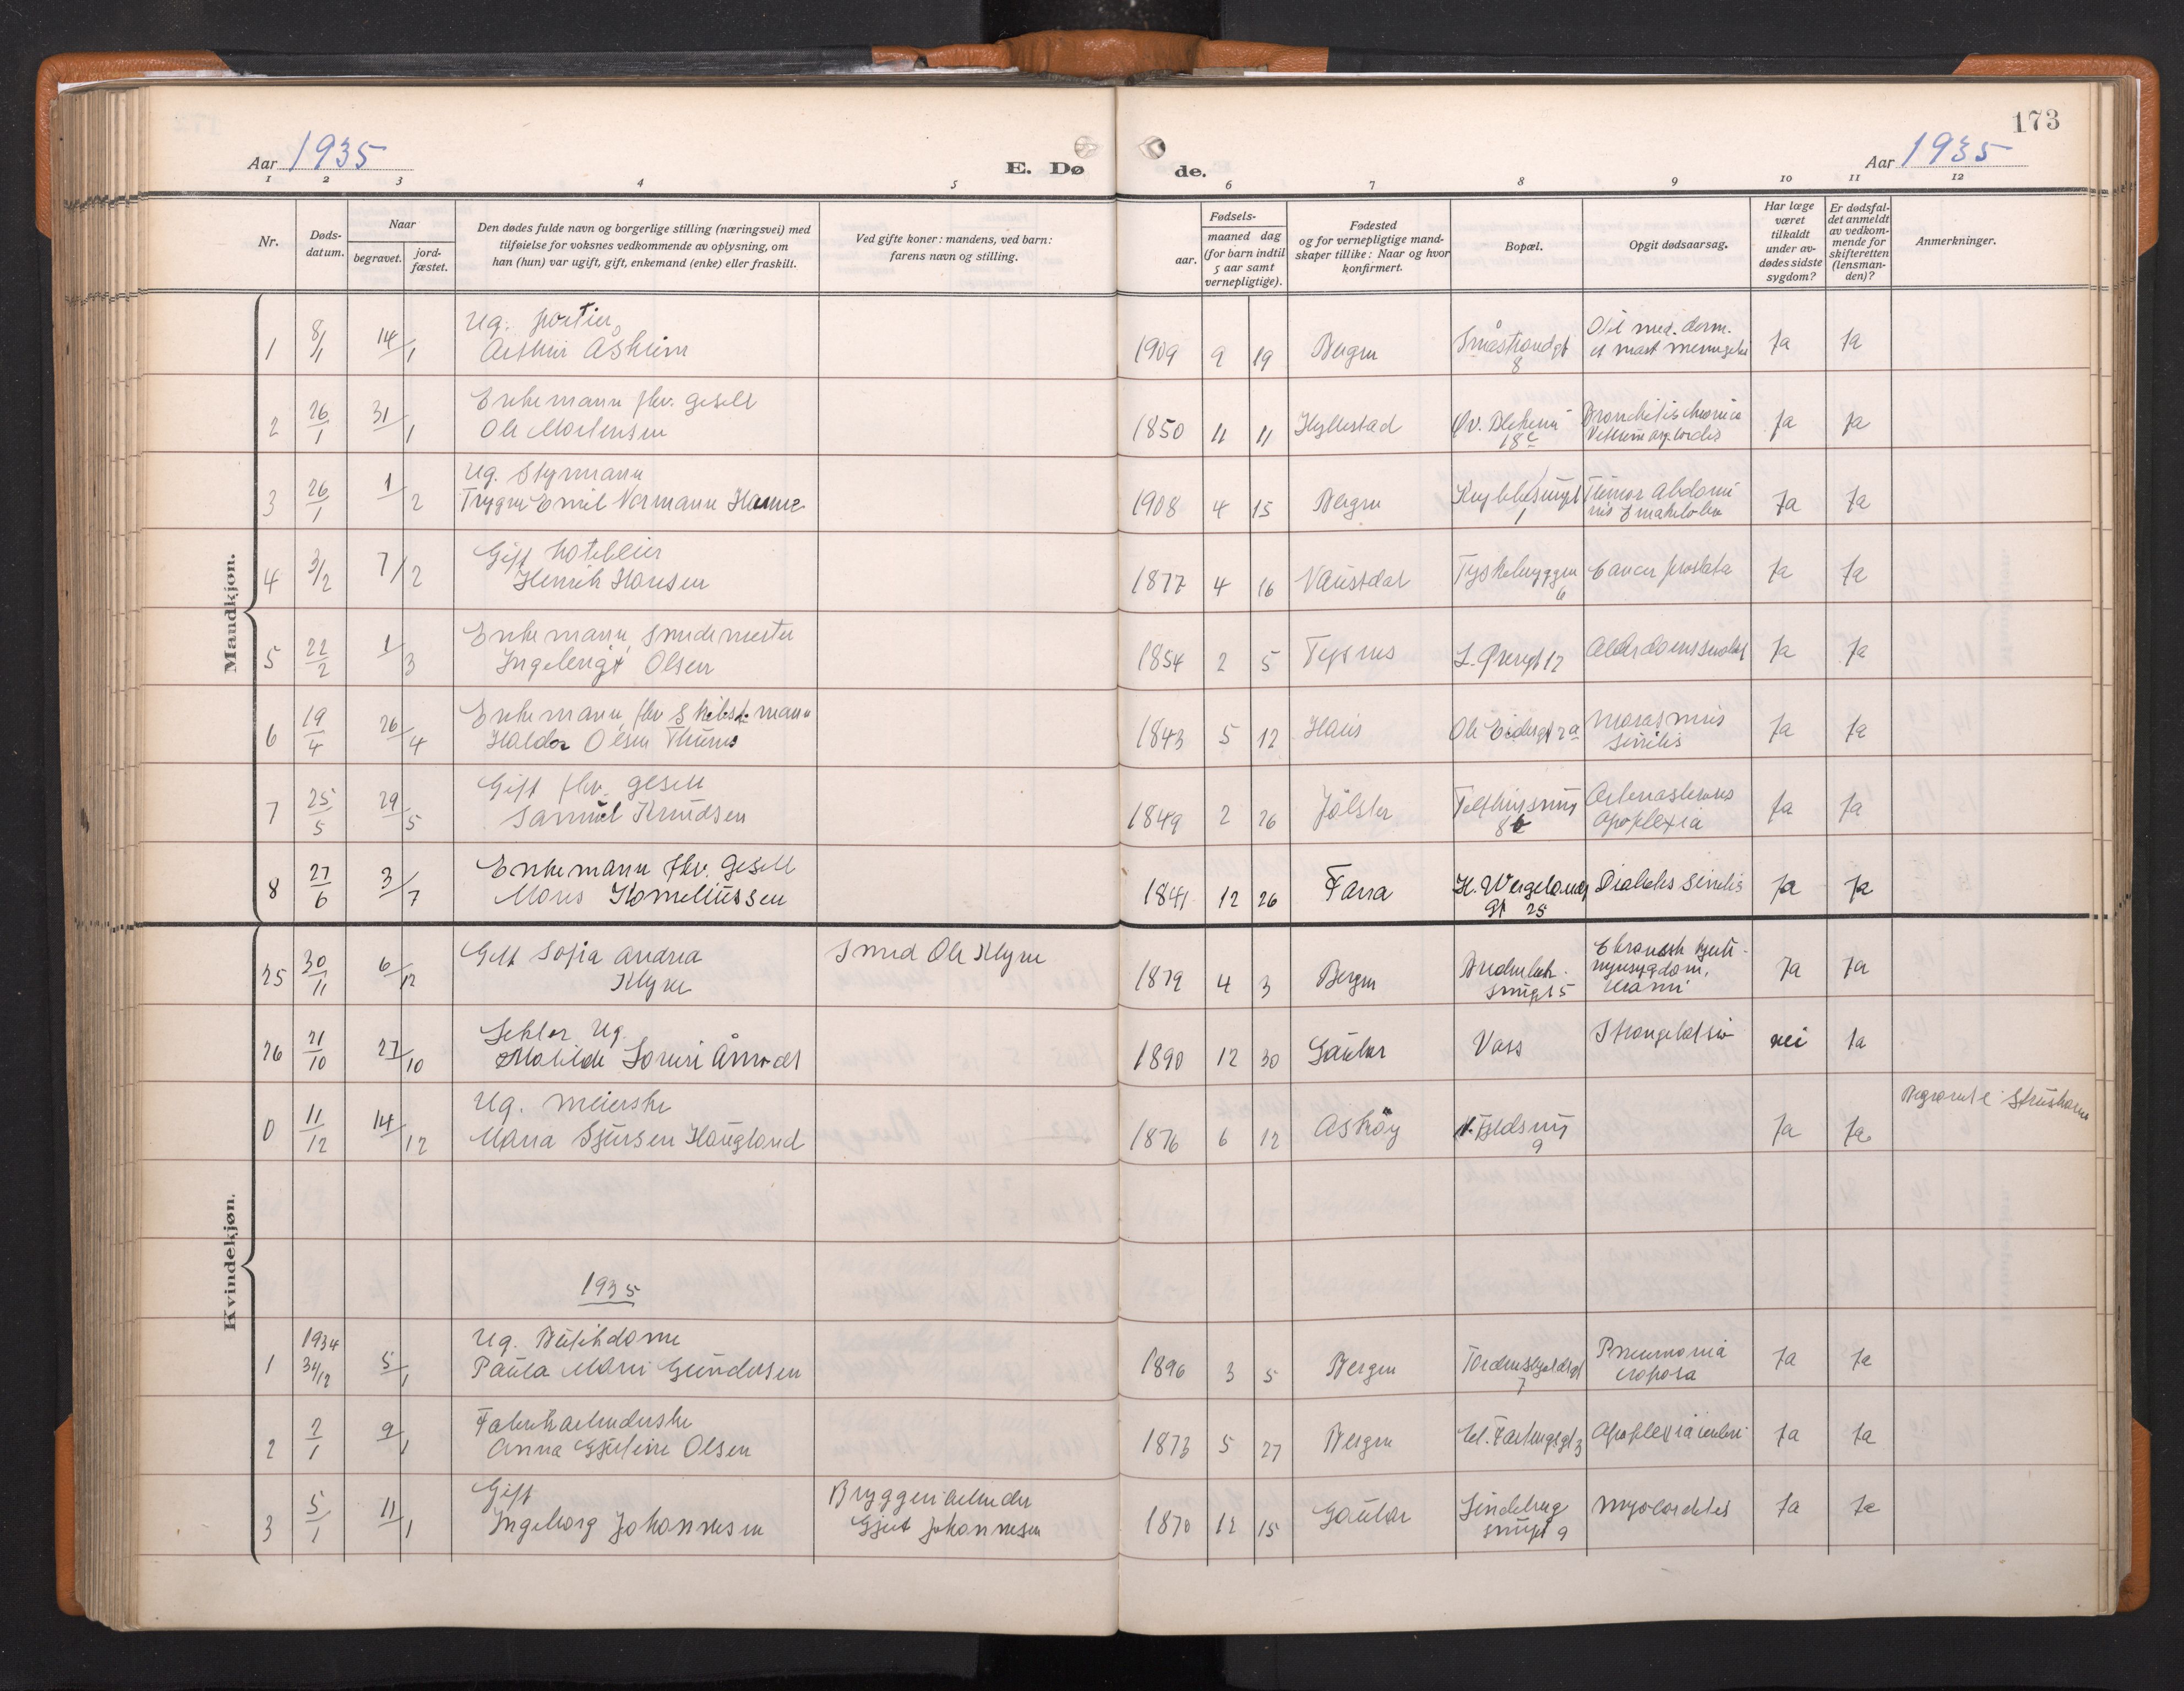 173
Aar 1935
E. Dø
de.
Aar 1935
1 2 3 4 5 6 7 8 9 10 11 12
Nr.
Døds-
datum.
Naar
begravet.
jord-
fæstet.
Den dødes fulde navn og borgerlige stilling (næringsvei) med
tilføielse for voksnes vedkommende av oplysning, om
han (hun) var ugift, gift, enkemand (enke) eller fraskilt.
Ved gifte koner: mandens, ved barn:
farens navn og stilling.
Fødsels-
aar.
maaned dag
(for barn indtil
5 aar samt
vernepligtige).
Fødested
og for vernepligtige mand-
skaper tillike: Naar og hvor
konfirmert.
Bopæl.
Opgit dødsaarsag.
Har læge
været
tilkaldt
under av-
dødes sidste
sygdom?
Er dødsfal-
det anmeldt
av vedkom-
mende for
skifteretten
(lensman-
den)?
Anmerkninger.
Mandkjøn.
1 8/1 14/1 Ug. portier
Arthur Åsheim
1909 9 19 Bergen Småstrandgt 8 Ja Ja
2 26/1 31/1 Enkemann fhv. gesell
Ole Mortensen
1850 11 11 Hyllestad Øv. Blekevei 18c Bronchitis chronica
Vitium org. cordis Ja Ja
3 26/1 1/2 Ug. Styrmann
Trygve Emil Normann Hanne
1908 4 15 Bergen 1 Tumor abdomi
nis Ja Ja
4 3/2 7/2 Gift hoteleier
Henrik Hansen
1877 4 16 Naustdal Tyskebryggen 6 Cancer prostata Ja Ja
5 22/2 1/3 Enkemann, smedmester
Ingebrigt Olsen
1854 2 5 Tysnes L. Øvregt 12 Ja Ja
6 19/4 26/4 Enkemann, fhv
Haldor Olsen Thunes
1843 5 12 Haus 2a Marasmus
senilis Ja Ja
7 25/5 29/5 Gift fhv. gesell
Samuel Knudsen
1849 2 26 Jølster Telthussmug 8 Arteriosclerosis
Apoplexia Ja Ja
8 27/6 3/7 Enkemann fhv. Gesell
Mons Korneliussen
1841 12 26 Fana H. Wergelands
gt 25 Diabetes senilis Ja Ja
Kvindekjøn.
25 30/11 6/12 Gift Sofia Andrea
Klyve
Smed Ole Klyve
1879 4 3 Bergen smuget 5 Kronisk hjerte-
nyresygdom,
Urämi Ja Ja
26 21/10 27/10 Lektor Ug.
Matilde
1890 12 30 Gaular Voss Strangulatsio nei Ja
0 11/12 14/12 Ug. meierske
Maria Sjursen Haugland
1876 6 12 Askøy Fjeldsmug
9 Ja Ja Begravet i Strusshamn
1935
1 1934 31/12 5/1 Ug. Butikdame
Paula Marie Gundersen
1896 3 5 Bergen Tordenskjoldsgt
7 Pneumonia
croposa Ja Ja
2 2/1 9/1 Fabrikarbeiderske
Anna Gjertine Olsen
1873 5 27 Bergen 3 Apoplexia cerebri Ja Ja
3 5/1 11/1 Gift
Ingeborg Johannesen
Bryggeriarbeider
Gjert Johannesen
1870 12 15 Gaular Lindebræk
smuget 9 Myocarditis Ja Ja